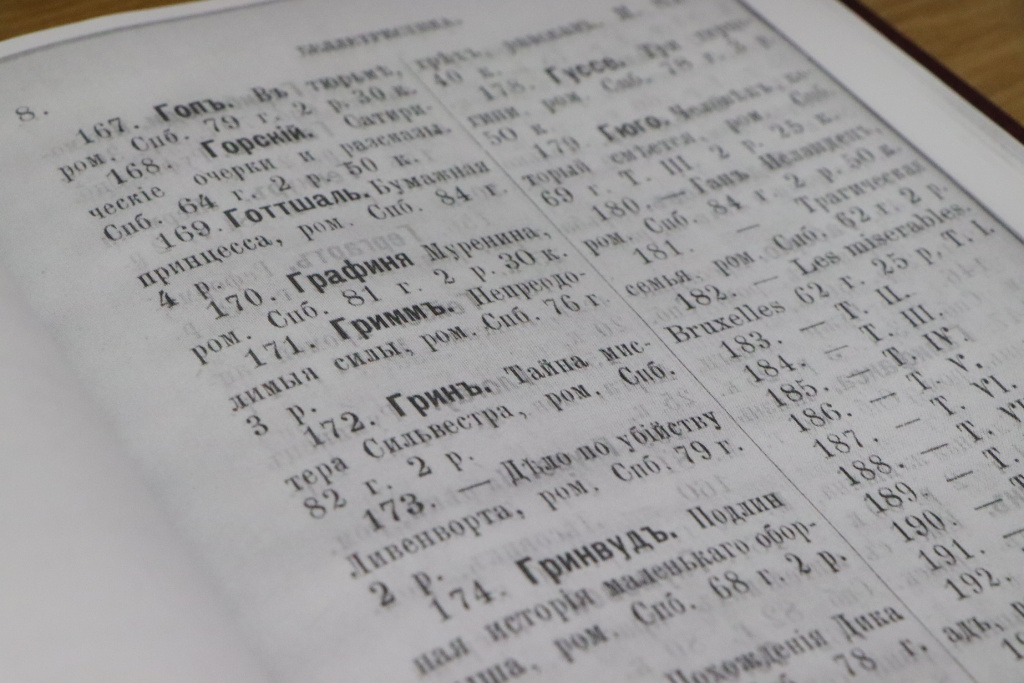 8.
БЕЛЛЕТРИСТИКА.
167. Гопъ. Въ тюрьмѣ,
ром. Спб. 79 г. 2 р. 30 к.
168. Горскій. Сатири-
ческіе очерки и разсказы.
Спб. 64 г. 2 р. 50 к.
169. Готтшаль. Бумажная
принцесса, ром. Спб. 84 г.
4 р.
170. Графиня Муренина,
ром. Спб. 81 г. 2 р. 30 к.
171. Гриммъ. Непреодо-
лимыя силы, ром. Спб. 76 г.
3 р.
172. Гринъ. Тайна мис-
тера Сильвестра, ром. Спб.
82 г. 2 р.
173. — Дѣло по убійству
Ливенворта, ром. Спб. 79 г.
2 р.
174. Гринвудъ. Подлин
ная исторія маленькаго обор-
ром. Спб. 68 г. 2 р.
Похожденія Дика
78 г.
40 к.
178. Гуссе. Три
ром. Спб. 78 г.
50 к.
179. Гюго. Человѣкъ, ко-
торый смѣется, ром. Спб.
69 г. Т. III 2 р. 25 к.
180. — Ганъ Исландецъ,
ром. Спб. 84 г. 2 р. 50 к.
181. — Трагическая
семья, ром. Спб. 62 г. 2 р.
182. — Les miserables.
Bruxelles 62 г. 25 р. Т. I.
183. — Т. II.
184. — Т. III.
185. — Т. IV.
186. — Т. V.
187. — Т. VI.
188. — Т.
189. — Т.
190. —
191. —
192.